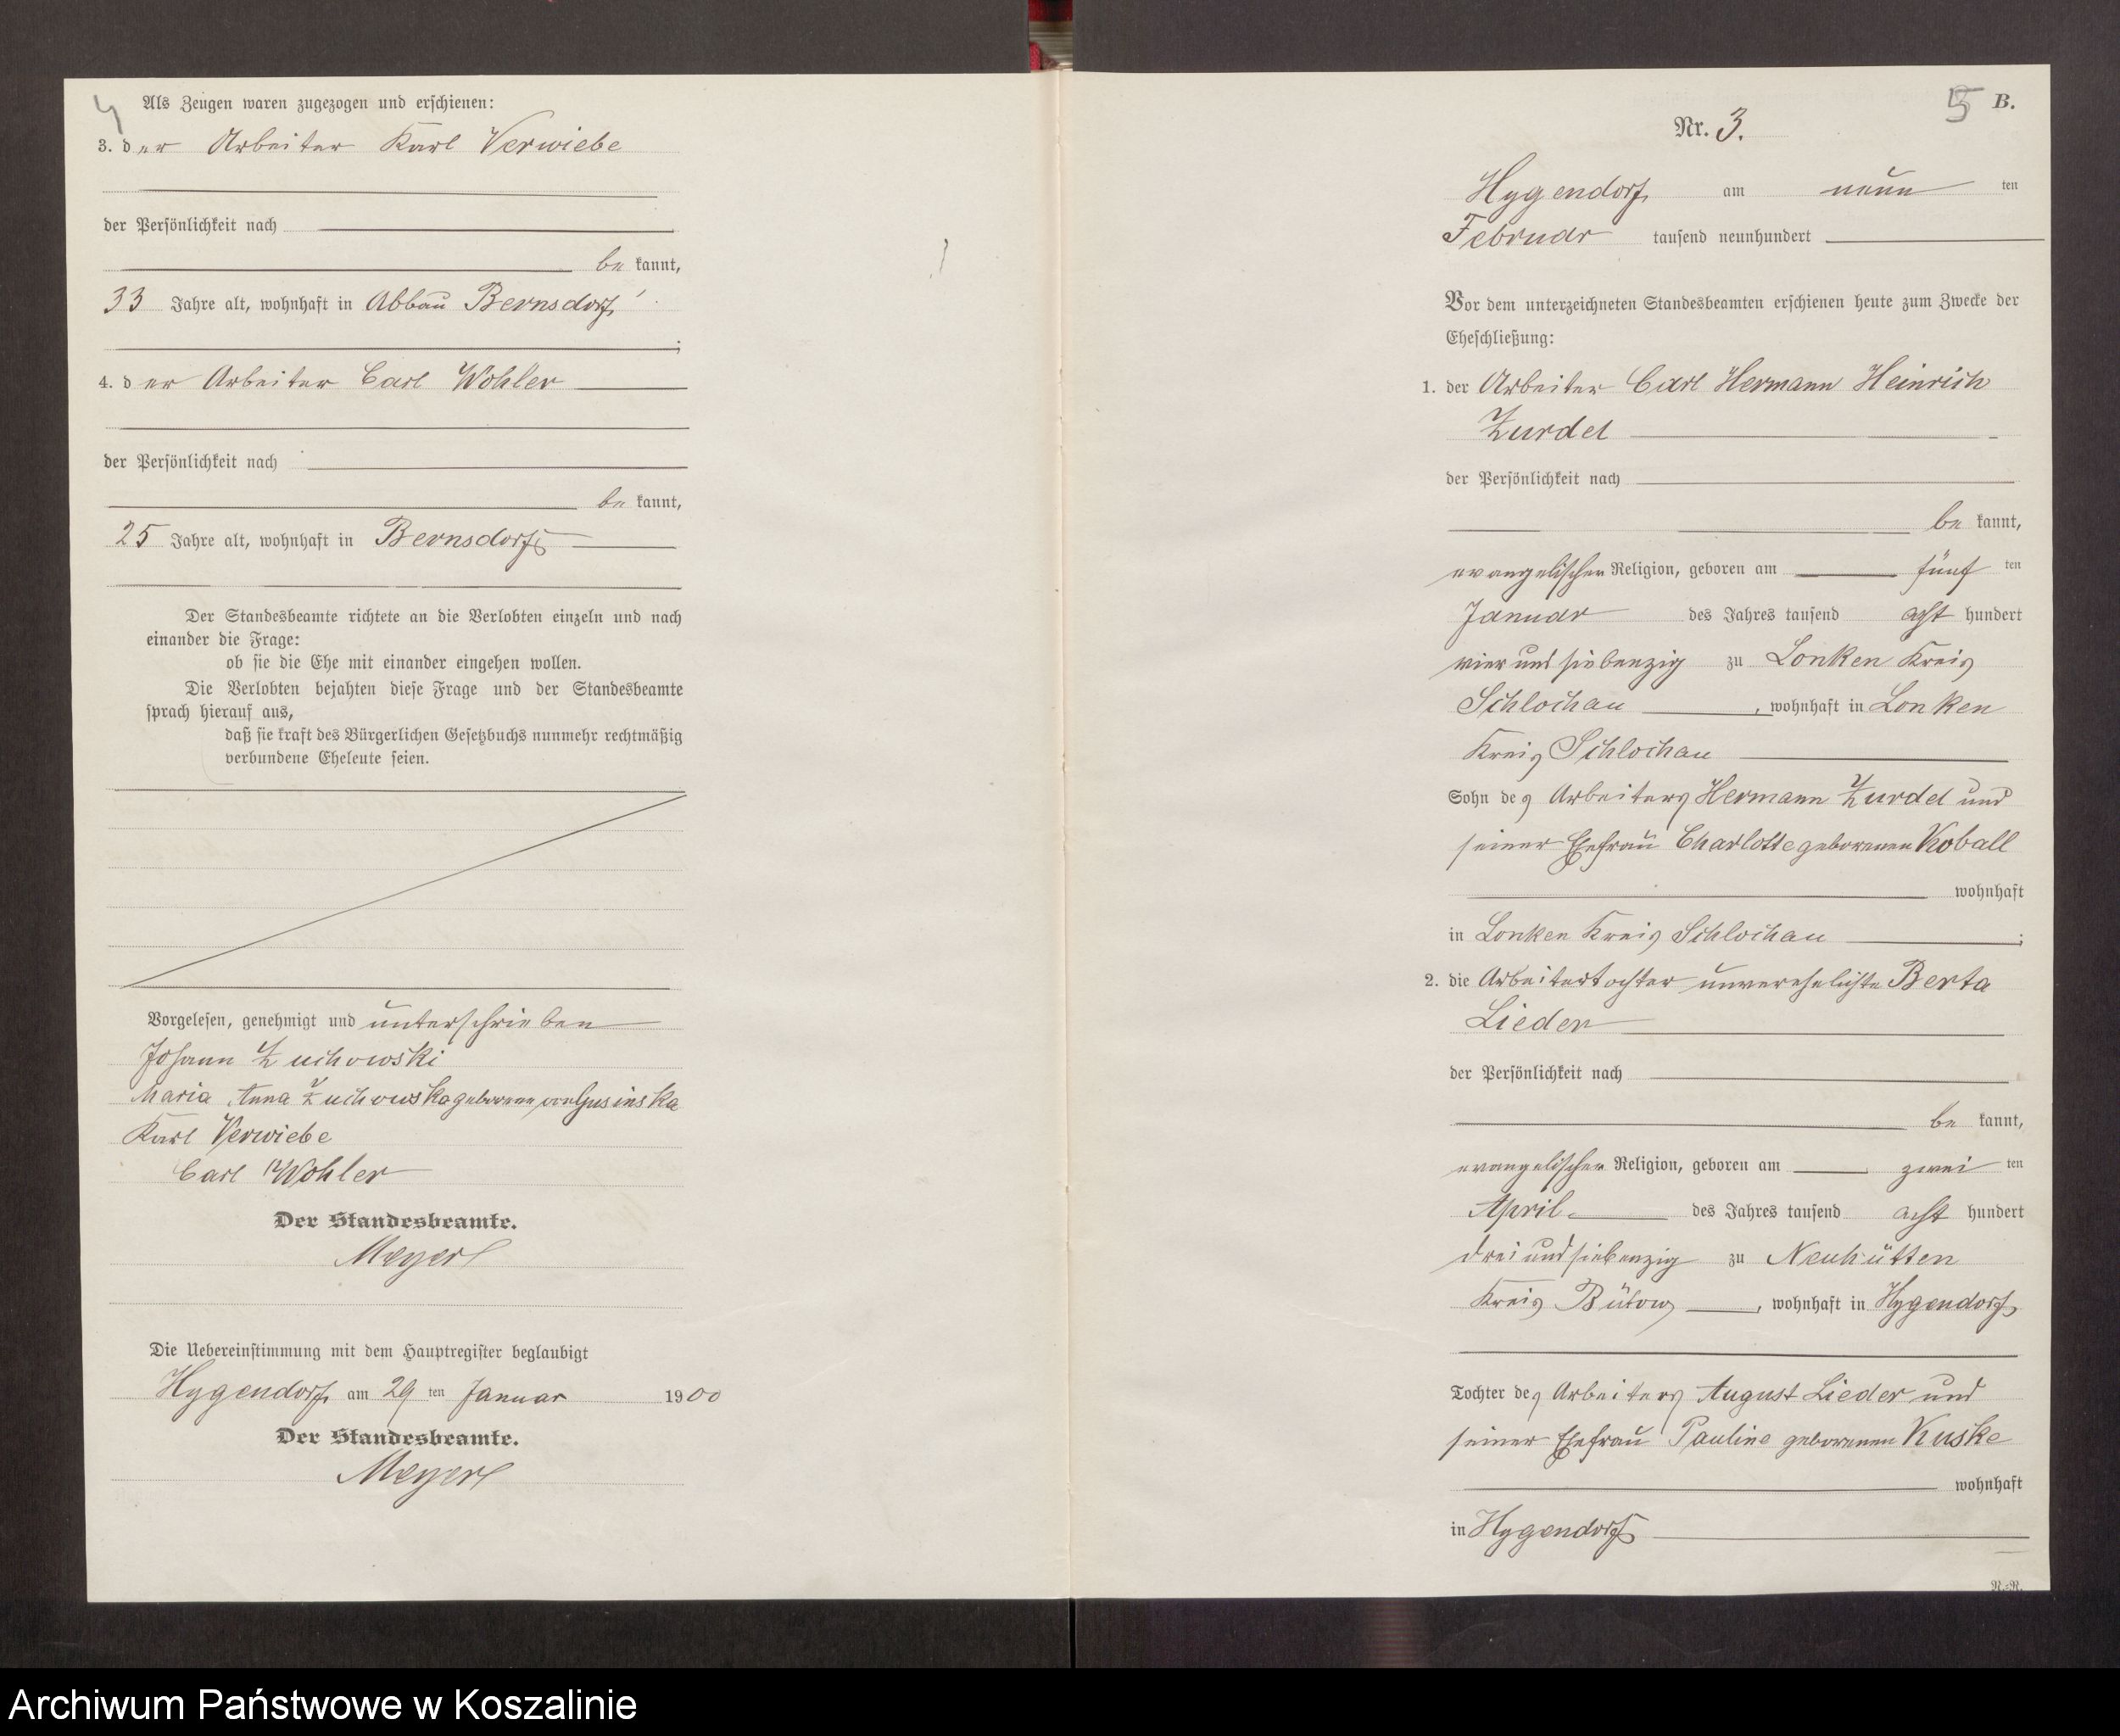 4
Als Zeugen waren zugezogen und erschienen:
3. der Arbeiter Karl Verwiebe
der Persönlichkeit nach
be kannt,
33 Jahre alt, wohnhaft in Abbau Bernsdorf
;
4. der Arbeiter Carl Wohler
der Persönlichkeit nach
be kannt,
25 Jahre alt, wohnhaft in Bernsdorf
Der Standesbeamte richtete an die Verlobten einzeln und nach
einander die Frage:
ob sie die Ehe mit einander eingehen wollen.
Die Verlobten bejahten diese Frage und der Standesbeamte
sprach hierauf aus,
daß sie kraft des Bürgerlichen Gesetzbuchs nunmehr rechtmäßig
verbundene Eheleute seien.
Vorgelesen, genehmigt und unterschrieben
Johann Zuchowski
Maria Anna Zuchowska geborene von Gusinska
Karl Verwiebe
Carl Wohler
Der Standesbeamte.
Meyer
Die Uebereinstimmung mit dem Hauptregister beglaubigt
Hygendorf am 29 ten Januar 1900
Der Standesbeamte.
Meyer
5 B.
Nr. 3.
Hygendorf am neun ten
Februar tausend neunhundert
Vor dem unterzeichneten Standesbeamten erschienen heute zum Zwecke der
Eheschließung:
1. der Arbeiter Carl Hermann Heinrich
Zurdel
der Persönlichkeit nach
be kannt,
evangelischer Religion, geboren am fünf ten
Januar des Jahres tausend acht hundert
vier und siebenzig zu Lonken Kreis
Schlochau, wohnhaft in Lonken
Kreis Schlochau
Sohn des Arbeiters Hermann Zurdel und
seiner Ehefrau Charlotte geborenen Koball
wohnhaft
in Lonken Kreis Schlochau ;
2. die Arbeitertochter unverehelichte Berta
Lieder
der Persönlichkeit nach
be kannt,
evangelischer Religion, geboren am zwei ten
April des Jahres tausend acht hundert
drei und siebenzig zu Neuhütten
Kreis Bütow, wohnhaft in Hygendorf
Tochter des Arbeiters August Lieder und
seiner Ehefrau Pauline geborenen Kuske
wohnhaft
in Hygendorf
R.=R.
Archiwum Państwowe w Koszalinie